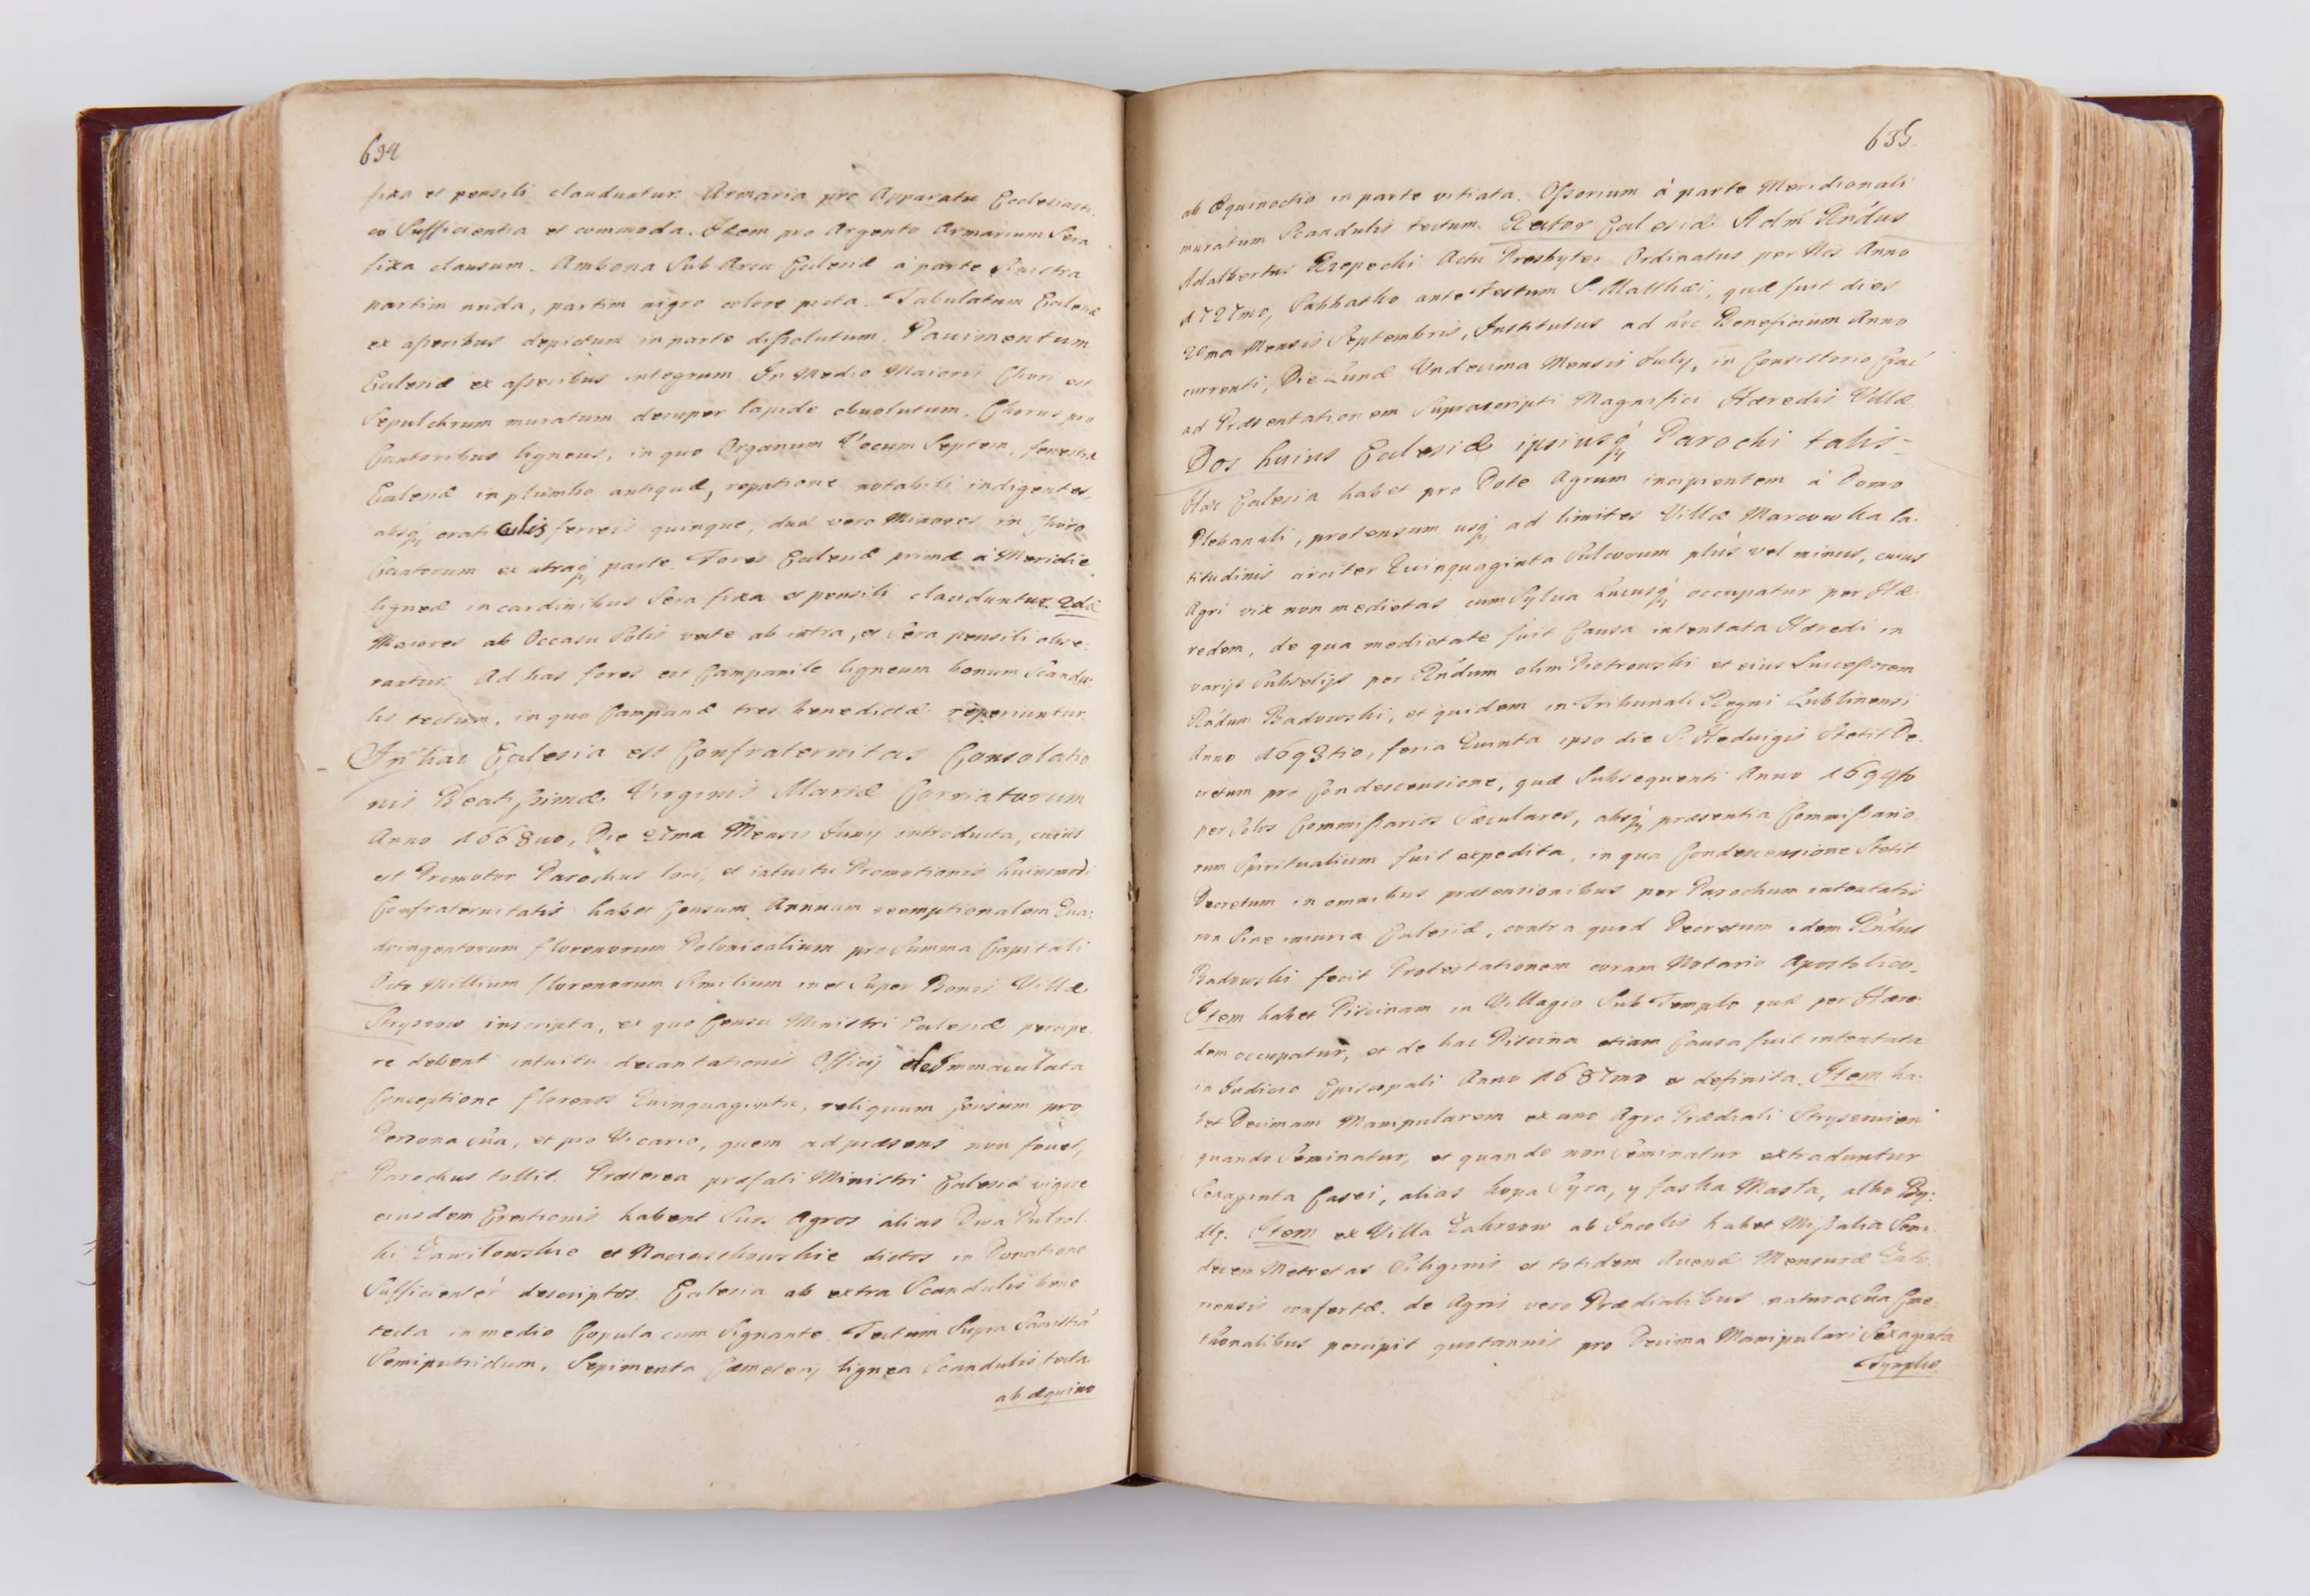 634
fixa et pensili clauduntur. Armaria pro Apparatu Ecclesiasti:
co Sufficientia et commoda. Item pro Argento Armarium Sera
fixa clausum. Ambona Sub Arcu Ecclesiæ à parte Sinistra
partim nuda, partim nigro colore picta. Tabulatum Ecclesiæ
ex asseribus depictum in parte dissolutum. Pavimentum
Ecclesiæ ex asseribus integrum. In Medio Maioris Chori est
Sepulchrum muratum desuper lapide obvolutum. Chorus pro
Cantoribus ligneus, in quo Organum Vocum Septem, fenestræ
Ecclesiæ in plumbo antiquæ, repatione notabili indigentes,
absq; craticulis ferreis quinque, duæ vero Minores in Choro
Cantorum ex utraq; parte. Fores Ecclesiæ primæ à Meridie
ligneæ in cardinibus Sera fixa et pensili clauduntur. 2dæ
Maiores ab Occasu Solis vecte ab intra, et Sera pensili obse:
rantur. Ad has fores est Campanile ligneum bonum Scandu:
lis tectum, in quo Campanæ tres benedictæ reperiuntur.
In hac Ecclesia est Confraternitas Consolatio
nis Beatissimæ Virginis Mariæ Corrigiatorum
Anno 1668vo, Die 27ma Mensis Iunij introducta, cuius
est Promotor Parochus loci, et intuitu Promotionis huiusmodi
Confraternitatis habet Censum Annuum reemptionalem Qua:
dringentorum florenorum Polonicalium pro Summa Capitali
Octo Millium florenorum Similium in et Super Bonis Villæ
Stryszow inscripta, ex quo Censu Ministri Ecclesiæ percipe
re debent intuitu decantationis Officij de Immaculata
Conceptione florenos Quinquaginta, reliquum Censum pro
Persona Sua, et pro Vicario, quem ad præsens non fovet,
Parochus tollit. Præterea præfati Ministri Ecclesiæ vigore
eiusdem Erectionis habent Suos Agros alias Dwa Pulrol:
ki et dictos in Donatione
Sufficienter descriptos. Ecclesia ab extra Scandulis bene
tecta in medio Copula cum Signante. Tectum Supra Sacristia
Semiputridum, Sepimenta Cæmeterij lignea Scandulis tecta
ab æquino
635.
ab Æquinoctio in parte vitiata. Ossorium à parte Meridionali
muratum Scandulis tectum. Rector Ecclesiæ Adm Rndus
Adalbertus Rzepecki Actu Presbyter Ordinatus per Nos Anno
1727mo, Sabbatho ante festum S. Matthæi, quæ fuit dies
20ma Mensis Septembris, Institutus ad hoc Beneficium Anno
currenti, Die Lunæ Undecima Mensis July, in Consistorio Crac
ad Præsentationem Suprascripti Magnifici Hæredis Villæ
Dos huius Ecclesiæ ipsiusq; Parochi talis
Hæc Ecclesia habet pro Dote Agrum incipientem à Domo
Plebanali, protensum usq; ad limites Villæ Marcowka la:
titudinis circiter Quinquaginta Sulcorum plus vel minus, cuius
Agri vix non medietas cum Sylva Lucusq; occupatur per Hæ:
redem, de qua medietate fuit Causa intentata Hæredi in
varijs Subselijs per Rndum olim Piotrowski et eius Successorem
Rndum Badowski, et quidem in Tribunali Regni Lublinensi
Anno 1693tio, feria Quinta ipso die S. Hedvigis Stetit De:
cretum pro Condescensione, quæ Subsequenti Anno 1694to
per Solos Commissarios Sæculares, absq; præsentia Commissario
rum Spiritualium fuit expedita, in qua Condescensione Stetit
Decretum in omnibus prætensionibus per Parochum intentatis
non Sine iniuria Ecclesiæ, contra quod Decretum idem Rndus
Badowski fecit Protestationem coram Notario Apostolico.
Item habet Piscinam in Villagio Sub Templo quæ per Hære:
dem occupatur, et de hac Piscina etiam Causa fuit intentata
in Iudicio Episcopali Anno 1687mo et definita. Item ha:
bet Decimam Manipularem ex uno Agro Prædiali Stryszoviensi
quando Seminatur, et quando non Seminatur extraduntur
Sexaginta Casei, alias kopa Syra, y faska Masla, albo By:
dlę. Item ex Villa Zakrzow ab Incolis habet Missalia Sem
decem Metretas Siliginis et totidem Avenæ Mensuræ Zato
riensis confertæ. de Agris vero Prædialibus natura Sua Cme
thonalibus percipit quotannis pro Decima Manipulari Sexaginta
Tympho.